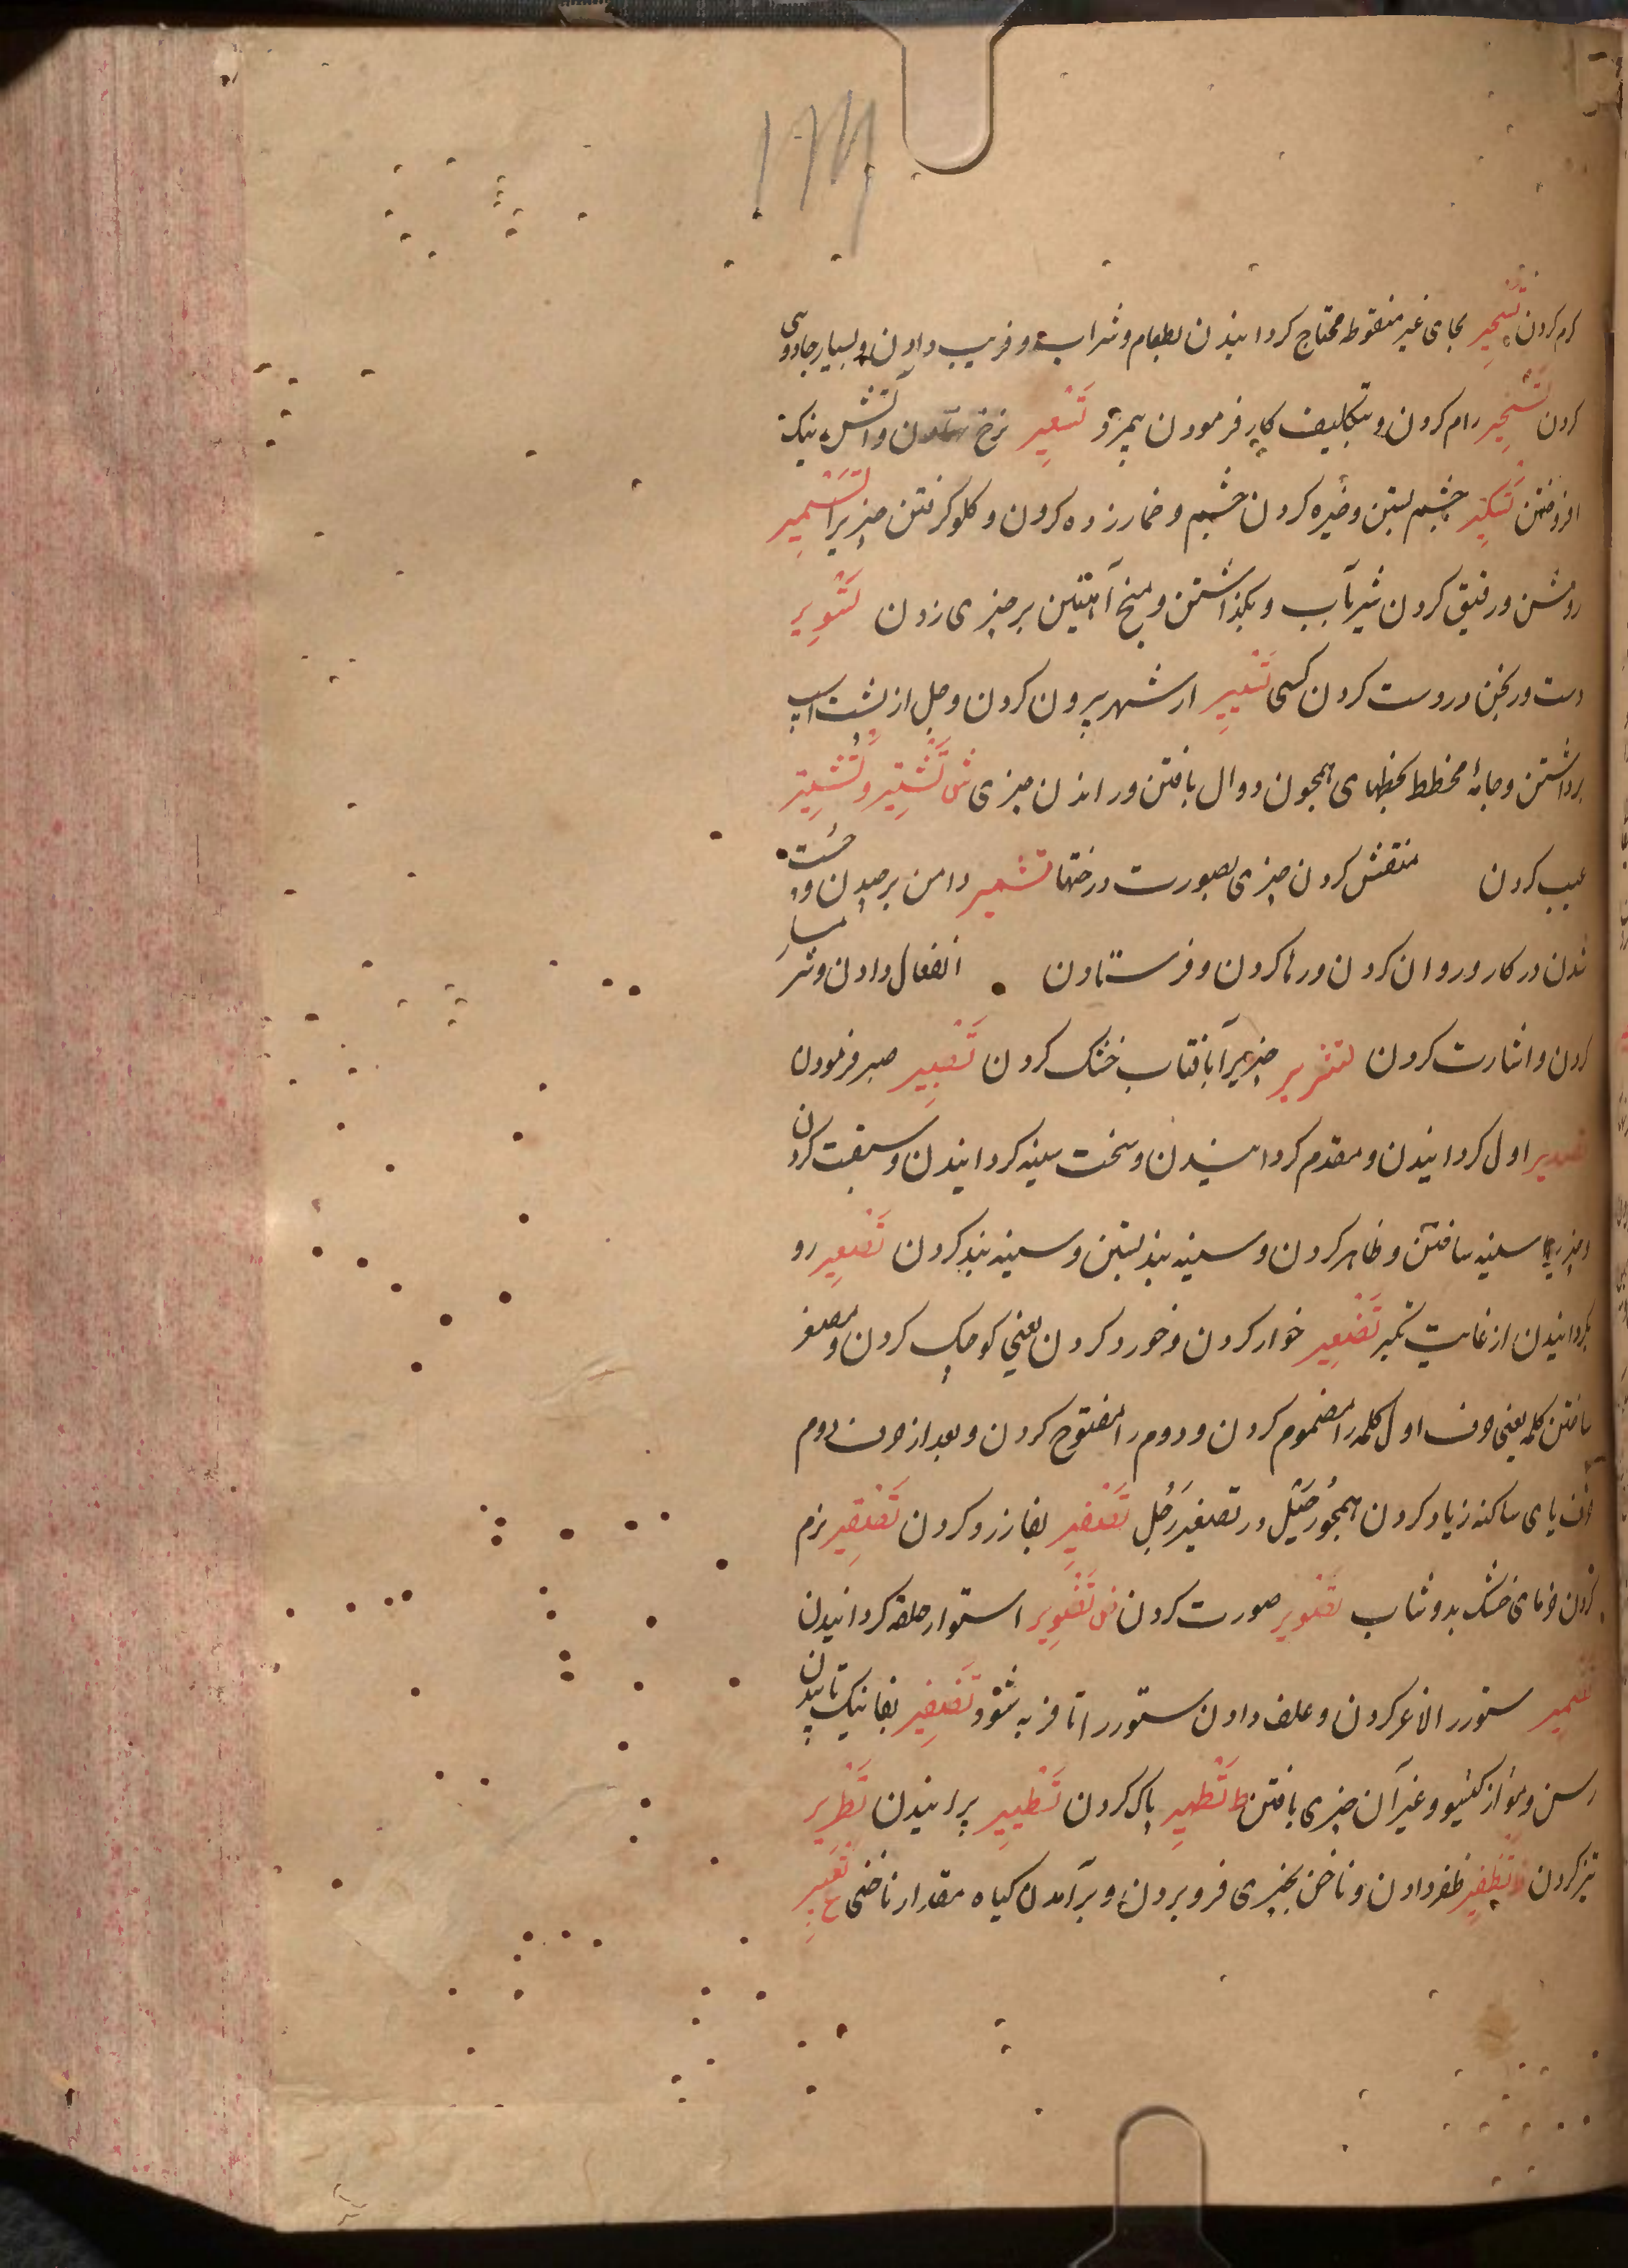 کرم کردن تسحیر بحای غیر منقوطه محتاج کردانیدن بطعام و شراب و فریب دادن و بسیار جادویی
کردن تسخیر رام کردن و بتکلیف کار فرمودن بیمزد تسعیر نرخ و آتش نیک
افروختن تسکیر چشم بستن و خیره کردن چشم و خمار زده کردن و کلو کرفتن چیزیرا تسمیر
روشن و رقیق کردن شیر بآب و بکذاشتن و میخ آهنین بر چیزی زدن تسویر
دست ورنجن در دست کردن کسی تسییر از شهر بیرون کردن و جل از پشت اسپ
برداشتن و جامهٔ مخطط بخطهای همچون دوال بافتن و راندن چیزی ش تشتیر و تشتیر
عیب کردن منقش کردن چیزی بصورت درختها تشمیر دامن برچیدن و چست
شدن در کار و روان کردن و رها کردن و فرستادن انفعال دادن و شرمسار
کردن و اشارت کردن تشریر چیزیرا بآفتاب خشک کردن تصبیر صبر فرمودن
تصدیر اول کردانیدن و مقدم کردانیدن و سخت سینه کردانیدن و سبقت کردن
سینه ساختن و ظاهر کردن و سینه بند بستن و سینه بند کردن تصعیر رو
بکردانیدن از غایت تکبر تصغیر خوار کردن و خورد کردن یعنی کوچک کردن و مصغر
ساختن کلمه یعنی حرف اول کلمه را مضموم کردن و دوم را مفتوح کردن و بعد از حرف دوم
آن یای ساکنه زیاد کردن همچو رجیل در تصغیر رجل تصفیر بفا زرد کردن تصقیر نرم
کردن خرمای خشک بدوشاب تصویر صورت کردن ض تضبیر استوار خلقه کردانیدن
تضمیر ستور را لاغر کردن و علف دادن ستور را تا فربه شود تضفیر بفا نیک تابیدن
رسن و مو از کیسو و غیر آن چیزی بافتن ط تطهیر پاک کردن تطییر پرانیدن تطریر
تیز کردن ظ تظفیر ظفر دادن و ناخن بچیزی فرو بردن و برآمدن کیاه مقدار ناخنی ع تعبیر